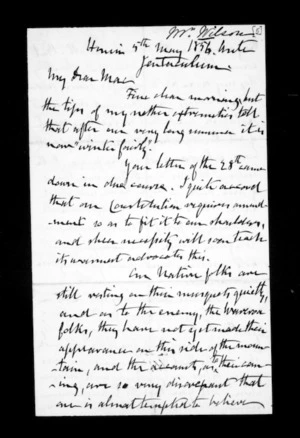 Mr. Wilson [2]
5th May 1856. Ante
Jentaculum.
My Dear Mac
Fine clear morning, but
the tips of my nether extremities tell
that after our very long summer it is
now "winter fairly".
Your letter of the 28th came
down in due course. I quite accord
that our Constitution requires amend-
ment so as to fit it to our shoulders,
and sheer necessity will soon teach
its warmest advocates this.
Our Native folks are
still resting on their musquets quietly,
and as to the enemy, the
folks, they have not yet made their
appearance on this side of the moun-
tain, and the accounts, as to their com-
ing, are so very discrepant that
one is almost tempted to believe